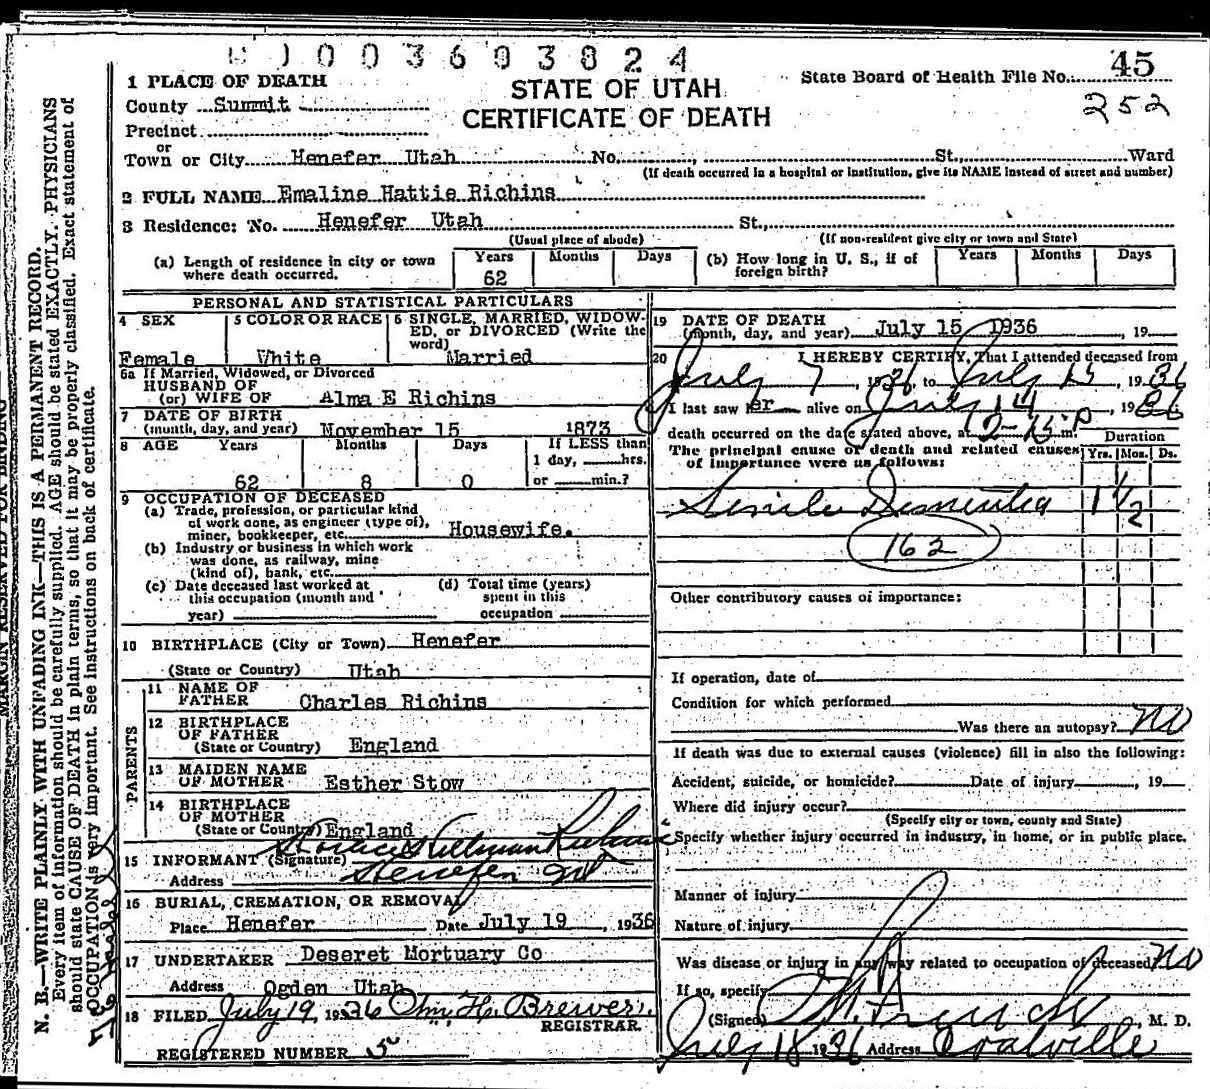 003603824
1 PLACE OF DEATH
STATE OF UTAH
CERTIFICATE OF DEATH
State Board of Health File No. 45
252
County Summit
Precinct
or
Town or City Henefer Utah No. , St., Ward
(If death occurred in a hospital or institution, give its NAME instead of street and number)
2 FULL NAME Emaline Hattie Richins
3 Residence: No. Henefer Utah St.,
(Usual place of abode) (If non-resident give city or town and State)
(a) Length of residence in city or town where death occurred. Years 62 Months Days
(b) How long in U. S., if of foreign birth? Years Months Days
PERSONAL AND STATISTICAL PARTICULARS
4 SEX Female
5 COLOR OR RACE White
6 SINGLE, MARRIED, WIDOWED, or DIVORCED (Write the word) Married
6a If Married, Widowed, or Divorced
HUSBAND OF
(or) WIFE OF Alma E Richins
7 DATE OF BIRTH
(month, day, and year) November 15 1873
8 AGE Years Months Days If LESS than
1 day, hrs.
62 8 0 or min.?
9 OCCUPATION OF DECEASED
(a) Trade, profession, or particular kind
of work done, as engineer (type of),
miner, bookkeeper, etc. Housewife.
(b) Industry or business in which work
was done, as railway, mine
(kind of), bank, etc.
(c) Date deceased last worked at
this occupation (month and
year)
(d) Total time (years)
spent in this
occupation
10 BIRTHPLACE (City or Town) Henefer
(State or Country) Utah
PARENTS
11 NAME OF
FATHER Charles Richins
12 BIRTHPLACE
OF FATHER
(State or Country) England
13 MAIDEN NAME
OF MOTHER Esther Stow
14 BIRTHPLACE
OF MOTHER
(State or Country) England
15 INFORMANT (Signature) Horace Richins
Address Henefer Ut
16 BURIAL, CREMATION, OR REMOVAL
Place Henefer Date July 19, 1936
17 UNDERTAKER Deseret Mortuary Co
Address Ogden Utah
18 FILED July 19, 1936 Brewer
REGISTRAR.
REGISTERED NUMBER 15
19 DATE OF DEATH
(month, day, and year) July 15 1936 , 19
20 I HEREBY CERTIFY, That I attended deceased from
July 7, 1936, to July 15, 1936
I last saw her alive on July 14, 1936
death occurred on the date stated above, at 2-15 P m.
The principal cause of death and related causes
of importance were as follows:
Duration
Yrs. Mos. Ds.
Senile Dementia 1 1/2
162
Other contributory causes of importance:
If operation, date of
Condition for which performed
Was there an autopsy? No
If death was due to external causes (violence) fill in also the following:
Accident, suicide, or homicide? Date of injury , 19
Where did injury occur?
(Specify city or town, county and State)
Specify whether injury occurred in industry, in home, or in public place.
Manner of injury
Nature of injury
Was disease or injury in any way related to occupation of deceased? No
If so, specify
(Signed) , M. D.
July 18 1936 Address Coalville
MARGIN RESERVED FOR BINDING
N. B.—WRITE PLAINLY WITH UNFADING INK—THIS IS A PERMANENT RECORD.
Every item of information should be carefully supplied. AGE should be stated EXACTLY. PHYSICIANS
should state CAUSE OF DEATH in plain terms, so that it may be properly classified. Exact statement of
OCCUPATION is very important. See instructions on back of certificate.